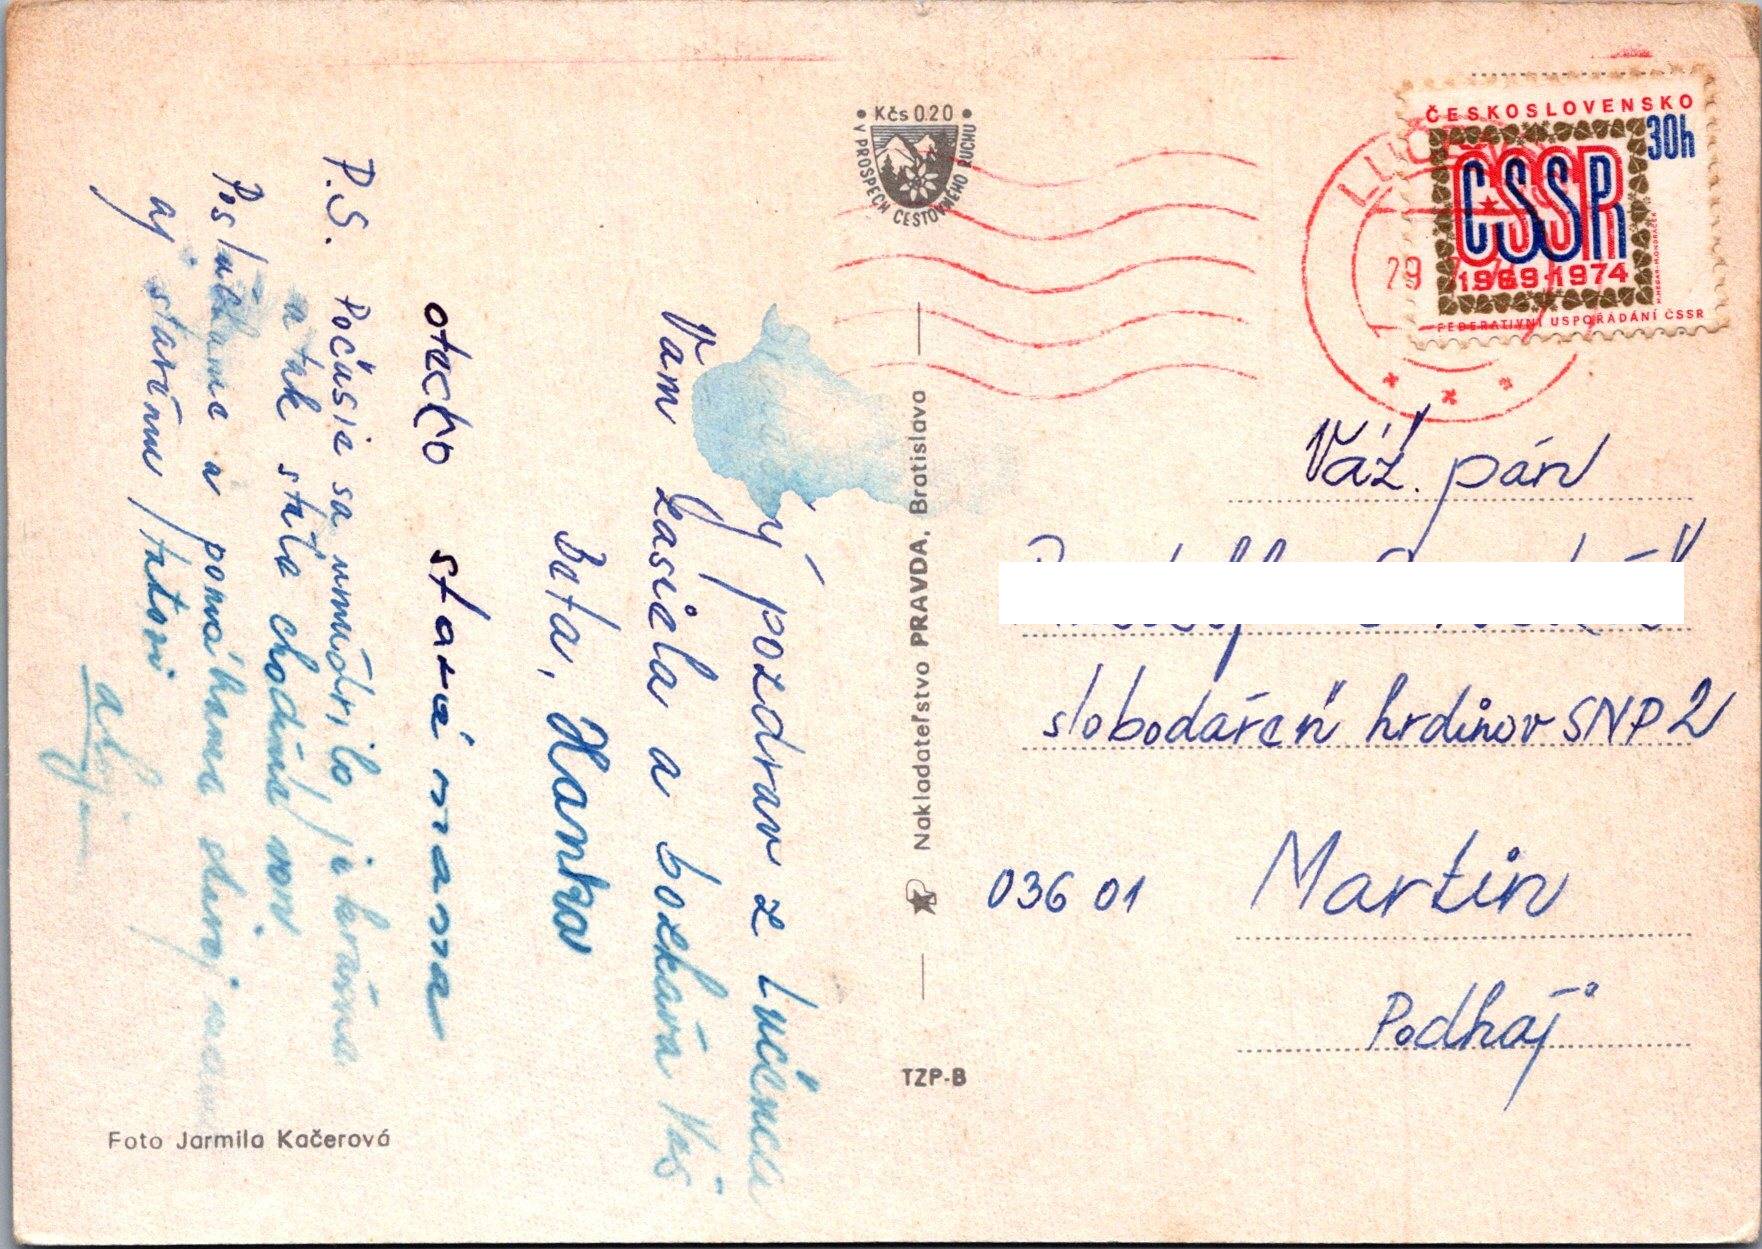 ý pozdrav z Lučenca
Vám zasiela a bozkáva Vás
Beta, Hanka
otecko stará mama
P.S. Počasie sa umúdrilo, je krásne
a tak stále chodíme von
Poslúchame a pomáhame starej mame
aj starému /tatovi
ahoj
Foto Jarmila Kačerová
• Kčs 0.20 •
V PROSPECH CESTOVNÉHO RUCHU
Nakladateľstvo PRAVDA, Bratislava
TZP-B
ČESKOSLOVENSKO
30h
ČSSR
1969 1974
FEDERATIVNÍ USPOŘÁDÁNÍ ČSSR
29
Váž. pán
slobodáreň hrdinov SNP 2
036 01 Martin
Podháj